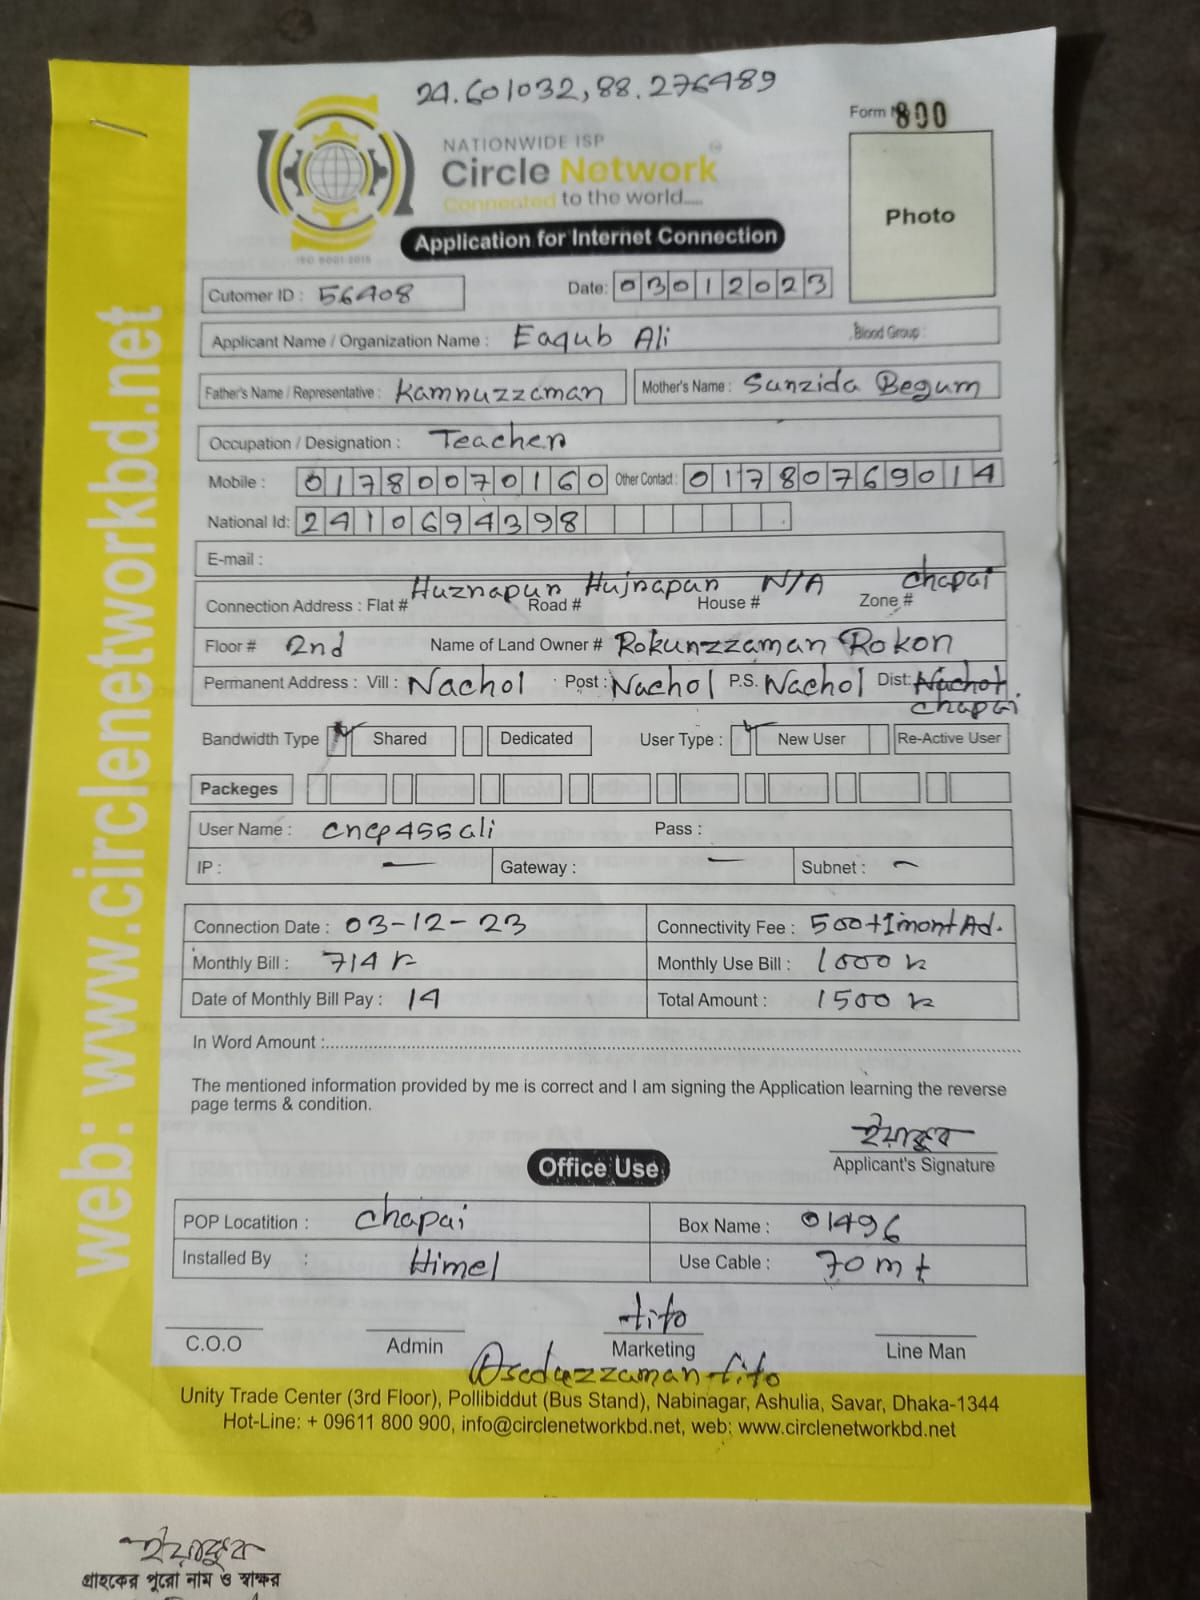 24.601032, 88.276489
Form № 800
NATIONWIDE ISP
Circle Network
Connected to the world.....
ISO 9001:2015
Photo
Application for Internet Connection
Cutomer ID : 56408 Date: 03012023
Applicant Name / Organization Name : Eaqub Ali Blood Group :
Father's Name / Representative : Kamruzzaman Mother's Name : Sanzida Begum
Occupation / Designation : Teacher
Mobile : 01780070160 Other Contact : 01780769014
National Id: 2410694398
E-mail :
Connection Address : Flat # Huzrapur Road # Hujrapur House # N/A Zone # chapai
Floor # 2nd Name of Land Owner # Rokunzzaman Rokon
Permanent Address : Vill : Nachol Post : Nachol P.S. Nachol Dist: Nachol
chapai
Bandwidth Type Shared Dedicated User Type : New User Re-Active User
Packeges
User Name : cncp455ali Pass :
IP : — Gateway : — Subnet : —
Connection Date : 03-12-23 Connectivity Fee : 500+1mont Ad.
Monthly Bill : 714 Monthly Use Bill : 1000
Date of Monthly Bill Pay : 14 Total Amount : 1500
In Word Amount :
The mentioned information provided by me is correct and I am signing the Application learning the reverse
page terms & condition.
ইয়াকুব
Applicant's Signature
Office Use
POP Locatition : chapai Box Name : 01496
Installed By : Himel Use Cable : 70 mt
tito
C.O.O Admin Marketing Line Man
Asaduzzaman tito
Unity Trade Center (3rd Floor), Pollibiddut (Bus Stand), Nabinagar, Ashulia, Savar, Dhaka-1344
Hot-Line: + 09611 800 900, info@circlenetworkbd.net, web: www.circlenetworkbd.net
web: www.circlenetworkbd.net
ইয়াকুব
গ্রাহকের পুরো নাম ও স্বাক্ষর